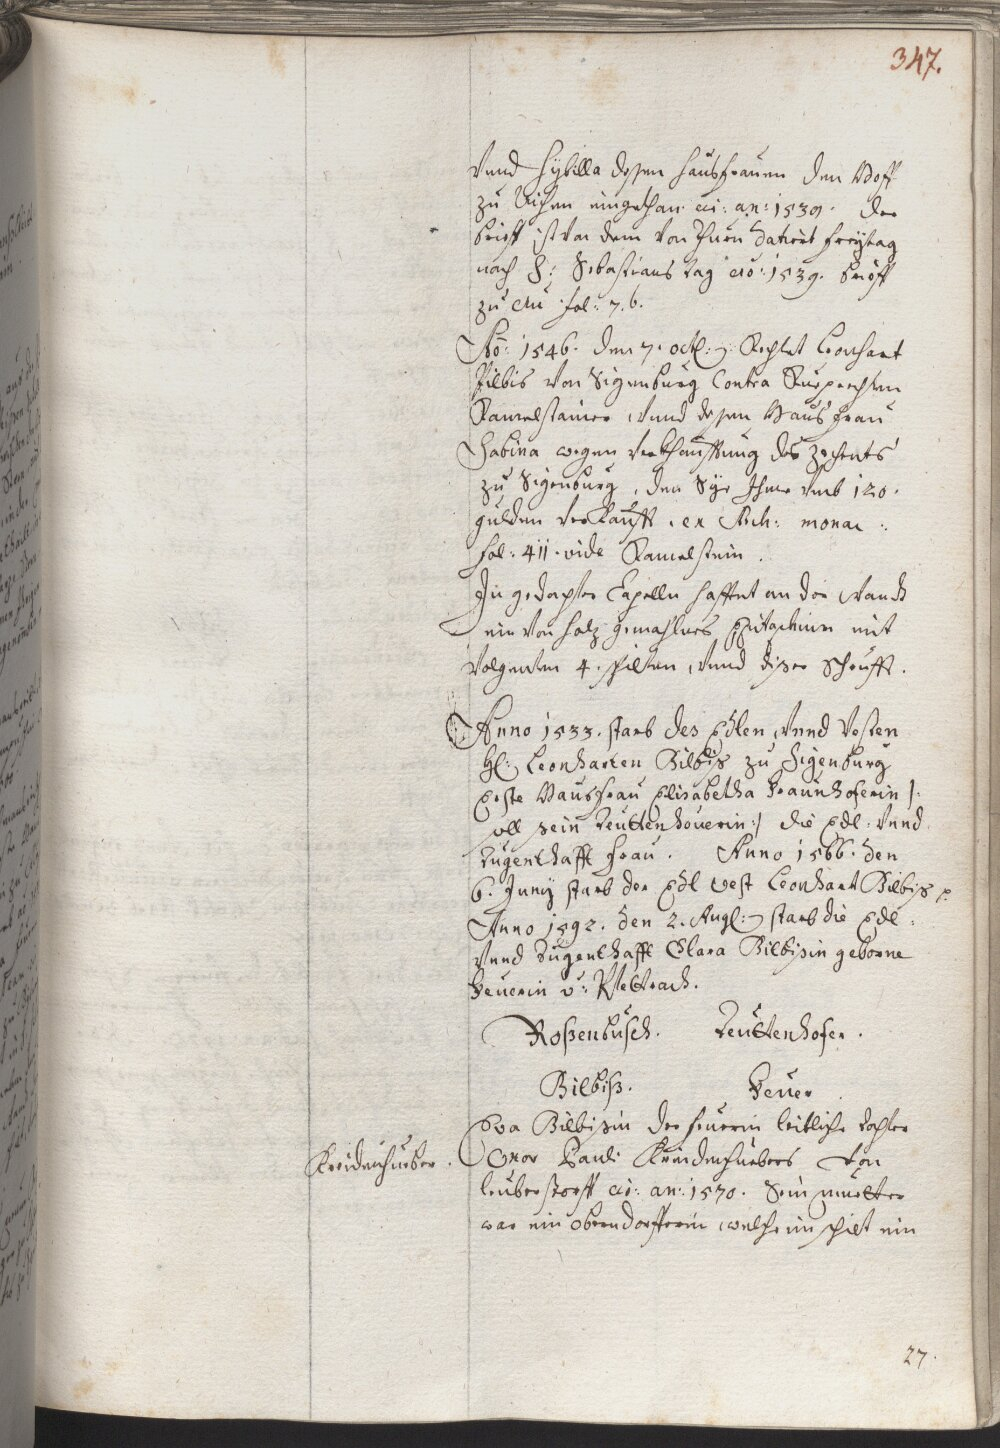 347.
Vnnd Sybilla dessen Hausfrauen den Hoff
zu Aichen eingethan ai: an: 1539. der
brieff ist von dem von Thurn datiert Freytag
nach S: Sebastians tag aõ: 1539. brieff
zu Au fol: 7. b.
Aõ: 1546. den 7. octb: Rechtet Leonhart
Pilbis von Sigenburg Contra Rueprechten
Ramelstainer, vnnd dessen Hausfrau
Sabina wegen verkhauffung des zehents
zu Sigenburg, den Sye Ihme vmb 120.
gulden verkaufft. ex Arch: monac:
fol: 411. vide Ramelstein.
In gedachter Capelln hafftet an der wandt
ein von holz gemahlnes Epitaphium mit
volgenten 4. schilten, vnnd diser schrifft.
Anno 1533. starb des Edlen vnnd Vesten
H: Leonharten Bilbis zu Sigenburg
Erste Hausfrau Elisabetha Braunhoferin /:
soll sein Teuttenhouerin :/ die Edl: vnnd
Tugenthafft frau. Anno 1566. den
6. Junij starb der Edl vest Leonhart Bilbis p.
Anno 1592. den 2. Augl: starb die Edl:
vnnd Tugenthafft Clara Bilbisin geborne
Feuerin v: Pfettrach.
Rosenbusch. Teuttenhofer.
Bilbiß. Feuer
Eva Bilbisin der Feuerin leibliche tochter
Kreidenhueber. Vxor Pauli Kreidenhuebers von
leuberstorff ai: an: 1570. Sein muetter
war ein oberndorfferin, welche im schilt ein
27.